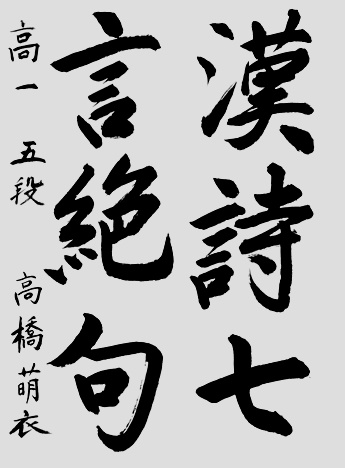 漢詩七
言絶句
高一 五段 高橋萌衣